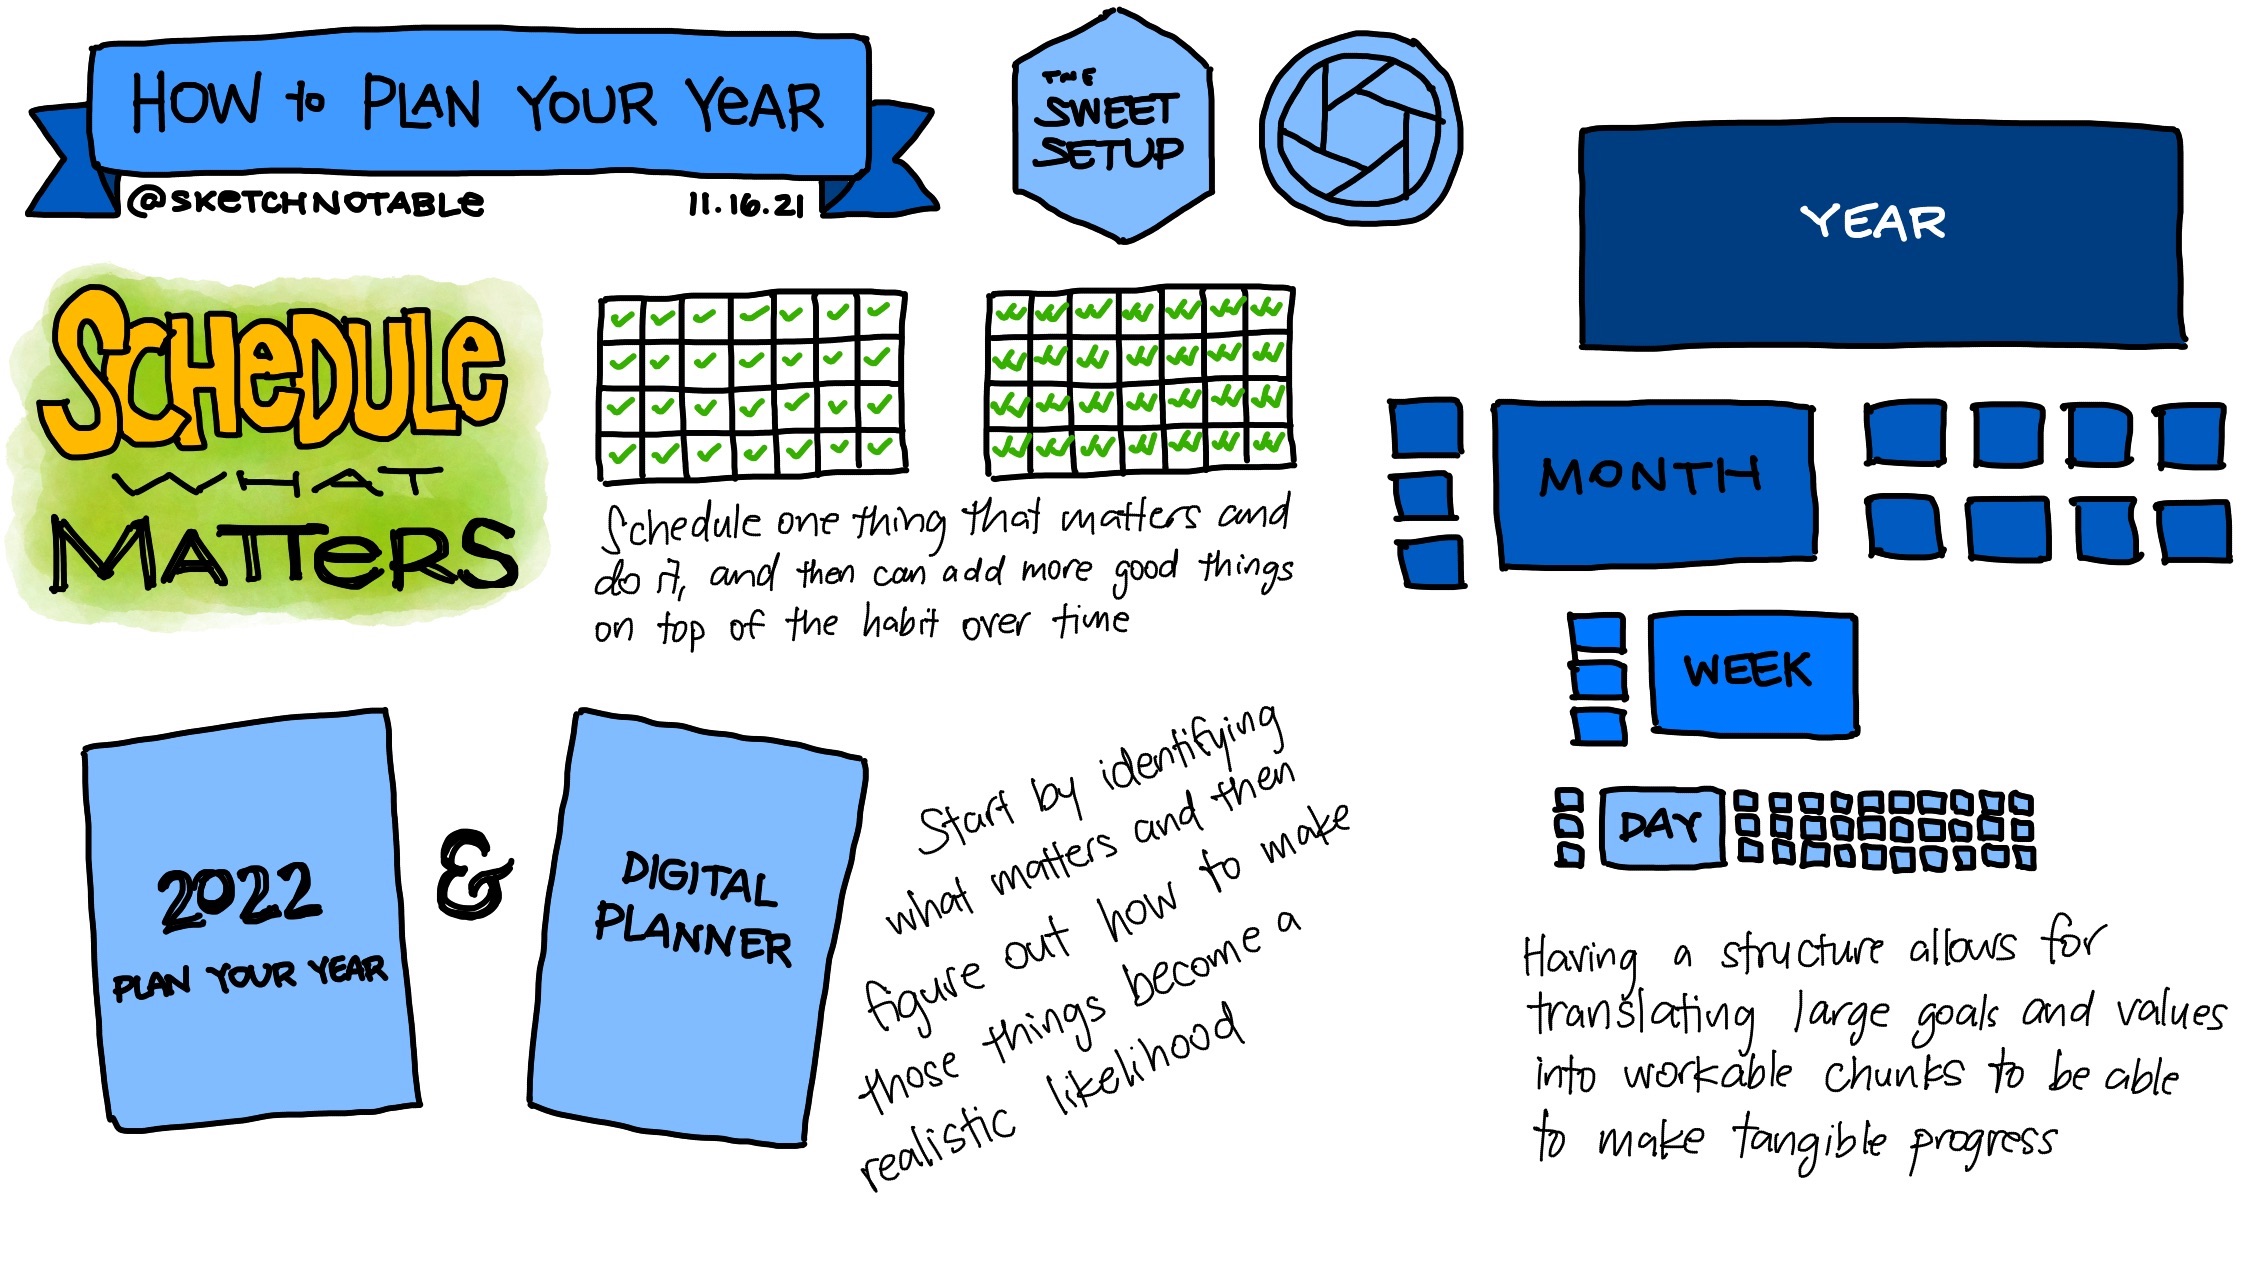 HOW to PLAN YOUR YeAR
@SKeTCHNOTABLe
11.16.21
THE
SWEET
SETUP
SCHeDULe
WHAT
MATTeRS
Schedule one thing that matters and
do it, and then can add more good things
on top of the habit over time
2022
PLAN YOUR YEAR
&
DIGITAL
PLANNER
Start by identifying
what matters and then
figure out how to make
those things become a
realistic likelihood
YEAR
MONTH
WEEK
DAY
Having a structure allows for
translating large goals and values
into workable chunks to be able
to make tangible progress